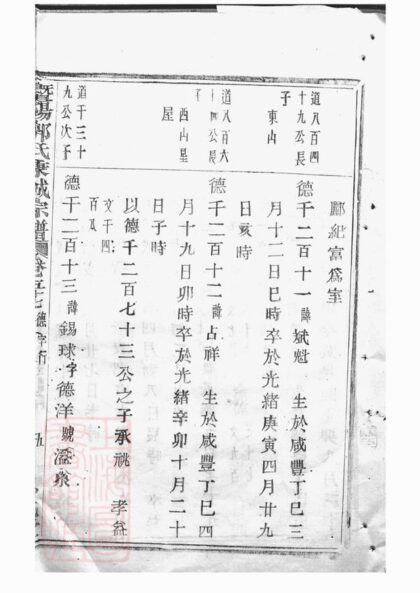 酈紀富爲室
道八百四
十九公長
子
東山
德千二百十一諱斌魁　生於咸豐丁巳三
月十二日巳時卒於光緒庚寅四月廿九
日亥時
道八百六
公長
西山墓
屋
德千二百十二諱占祥　生於咸豐丁巳四
月十九日卯時卒於光緒辛卯十月二十
日子時
以德千二百七十三公之子承祧　孝
文千四
百
道千三十
九公次子
德千二百十三諱錫球字德洋號溢泉
暨陽酈氏 城宗譜 卷五十七 德字行
九